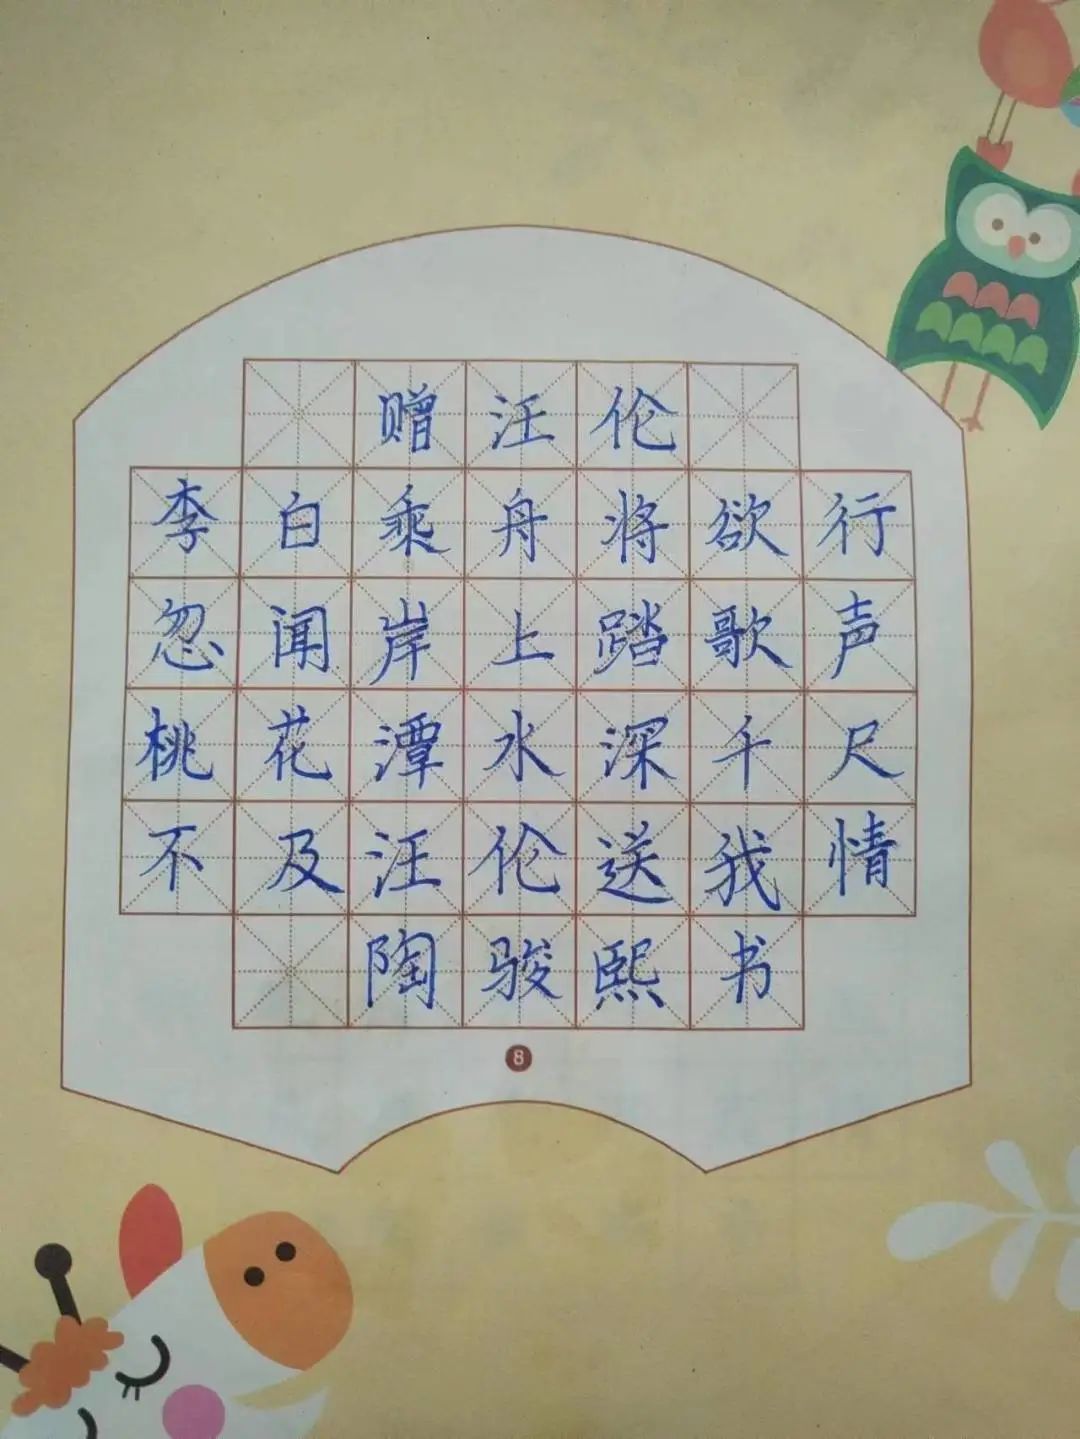 赠汪伦
李白乘舟将欲行
忽闻岸上踏歌声
桃花潭水深千尺
不及汪伦送我情
陶骏熙书
8